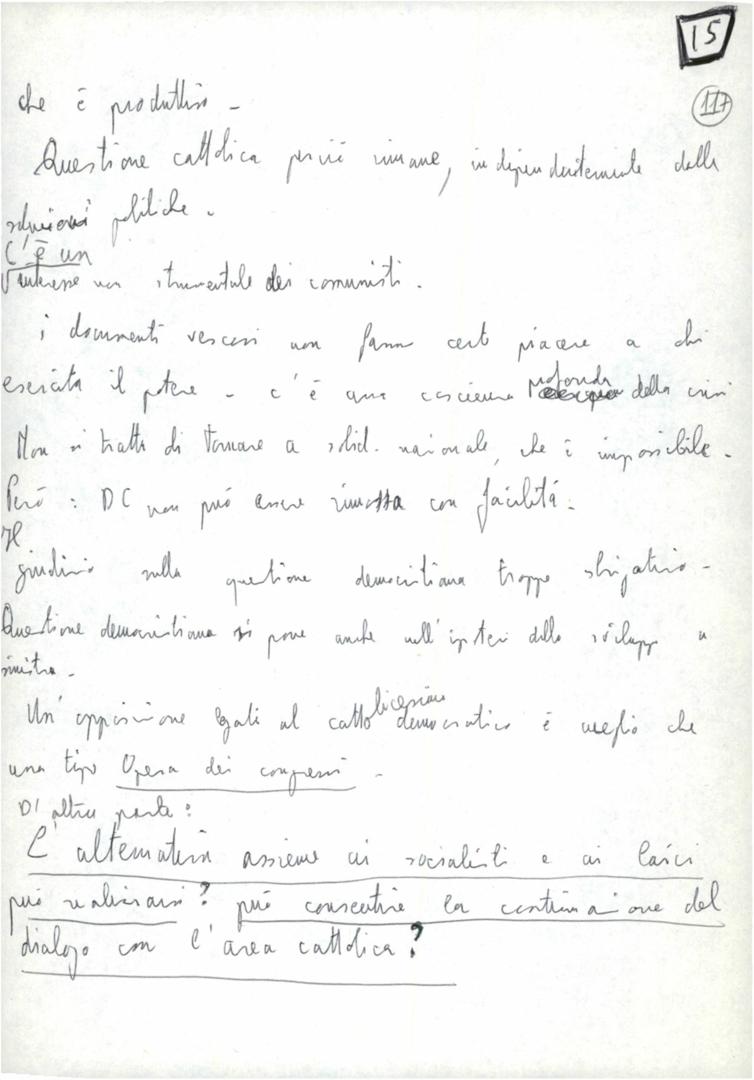 15
117
che è produttivo -
Questione cattolica perciò rimane, indipendentemente dalle
soluzioni politiche.
C'è un
interesse non strumentale dei comunisti.
i documenti vescovi non fanno certo piacere a chi
esercita il potere - c'è una coscienza profonda della crisi
Non si tratta di tornare a solid. nazionale, che è impossibile.
Però: DC non può essere rimossa con facilità.
Il
giudizio sulla questione democristiana troppo sbrigativo -
Questione democristiana si pone anche nell'ipotesi dello sviluppo a
sinistra.
Un'opposizione legata al cattolicesimo democratico è meglio che
una tipo Opera dei congressi.
D'altra parte:
L'alternativa assieme ai socialisti e ai laici
può realizzarsi? può consentire la continuazione del
dialogo con l'area cattolica?